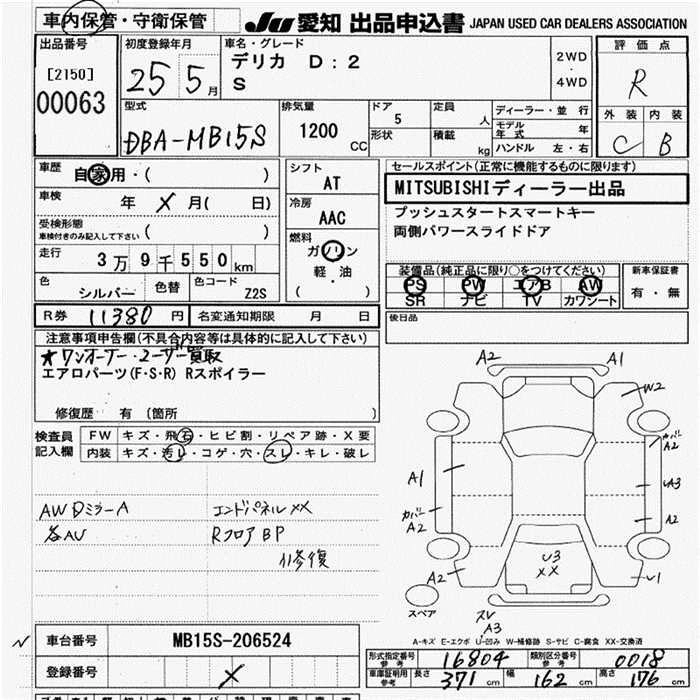 車内保管・守衛保管
JU 愛知 出品申込書 JAPAN USED CAR DEALERS ASSOCIATION
出品番号
[2150]
00063
初度登録年月
25 5月
車名・グレード
デリカ D:2
S
2WD
・
4WD
評価点
R
外装 内装
C B
型式
DBA-MB15S
排気量
1200 CC
ドア 5
形状
定員 人
積載 kg
ディーラー・並行
モデル年式 年
ハンドル 左・右
車歴 自家用・( )
車検 年 X 月( 日)
受検形態
車検付きのみ記入して下さい ( )
走行 3万9千550km
色 シルバー 色替 色コード Z2S
シフト
AT
冷房
AAC
燃料
ガソリン
軽・油
( )
セールスポイント(正常に機能するものに限ります)
MITSUBISHIディーラー出品
プッシュスタートスマートキー
両側パワースライドドア
装備品(純正品に限り○をつけてください)
PS PW エアB AW
SR ナビ TV カワシート
新車保証書
有・無
R券 11380円 名変通知期限 月 日
後日品
注意事項申告欄(不具合内容等は具体的に記入して下さい)
★ワンオーナー・ユーザー買取
エアロパーツ(F・S・R) Rスポイラー
修復歴 有 (箇所 )
検査員記入欄
FW キズ・飛石・ヒビ割・リペア跡・X要
内装 キズ・汚レ・コゲ・穴・スレ・キレ・破レ
AWDミラーA
各AU
エンドパネルXX
RフロアBP
修復
A2 A1
W2
A1
カバー
A2
カバー
A2
A3
A2
U3
XX
A2
U1
スペア
A3
A-キズ E-エクボ U-凹み W-補修跡 S-サビ C-腐食 XX-交換済
車台番号 MB15S-206524
登録番号 X
型式指定番号 参考 16804 類別区分番号 参考 0018
車庫証明用 参考 長さ 371 cm 幅 162 cm 高さ 176 cm